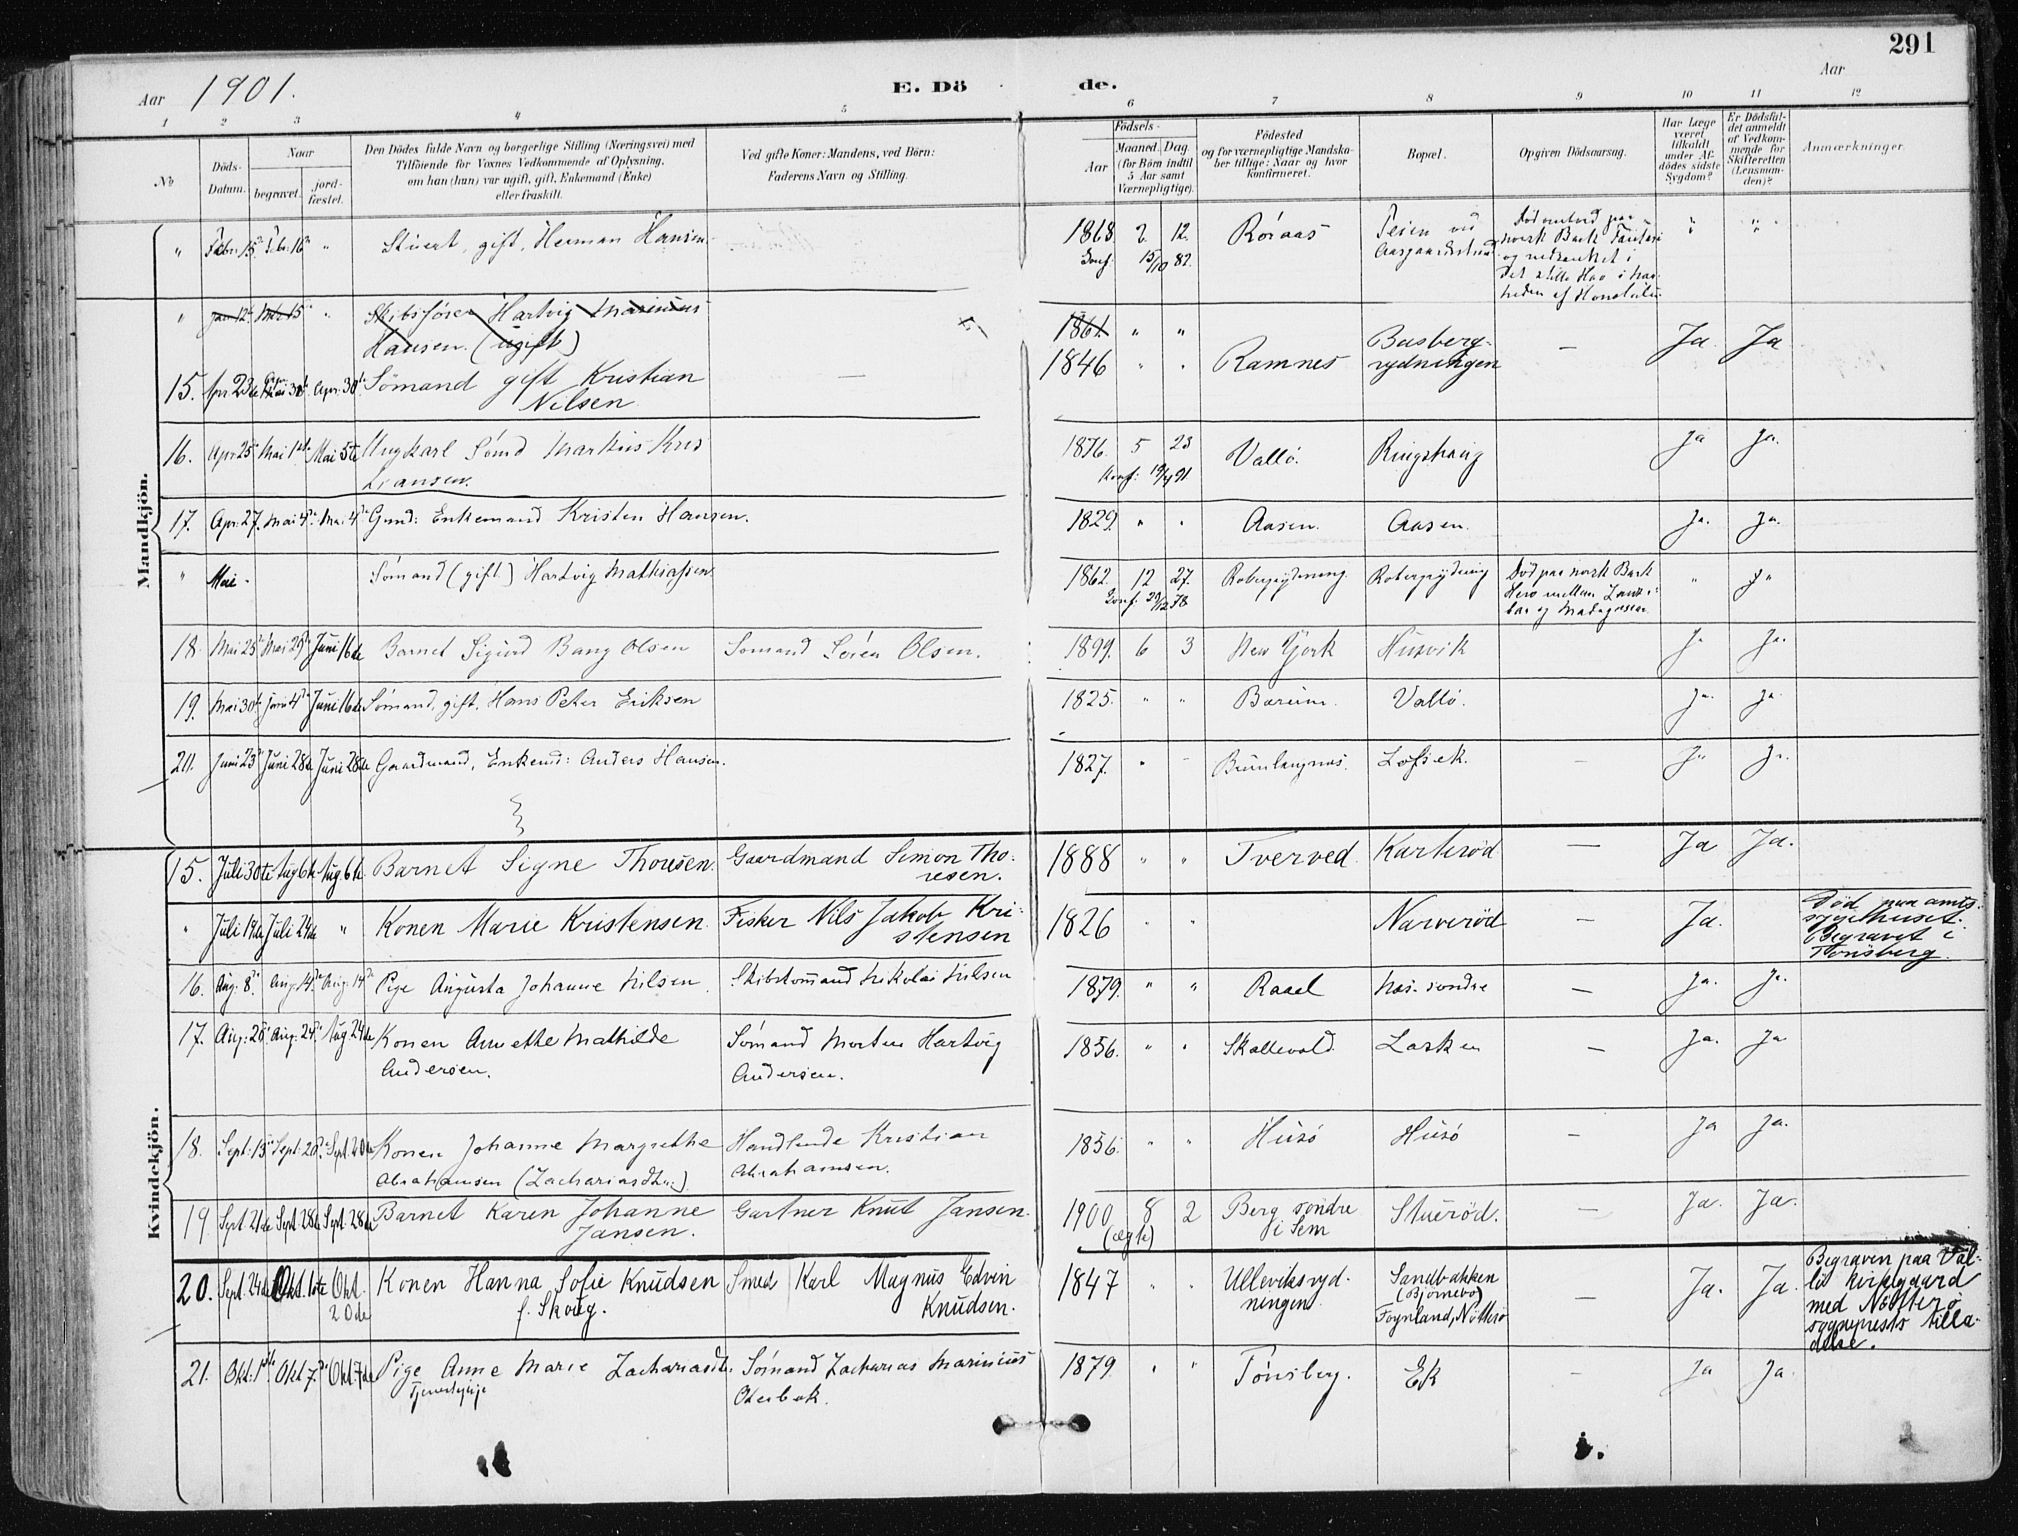 291
Aar 1901.
E. Dö de.
Aar
1 2 3 4 5 6 7 8 9 10 11 12
No
Döds-Datum.
Naar
begravet.
jord-fæstet.
Den Dödes fulde Navn og borgerlige Stilling (Næringsvei) med
Tilföiende for Voxnes Vedkommende af Oplysning,
om han (hun) var ugift, gift, Enkemand (Enke)
eller fraskilt.
Ved gifte Koner: Mandens, ved Börn:
Faderens Navn og Stilling.
Födsels-
Aar
Maaned. Dag
(for Börn indtil
5 Aar samt
Værnepligtige).
Födested
og for værnepligtige Mandska-
ber tillige: Naar og hvor
konfirmeret.
Bopæl.
Opgiven Dödsaarsag.
Har Læge
været
tilkaldt
under Af-
dödes sidste
Sygdom?
Er Dödsfal-
det anmeldt
af Vedkom-
mende for
Skifteretten
(Lensman-
den)?
Anmærkninger.
Mandkjön.
" Febr: 15de Febr. 16de " gift, Herman Hansen. 1868. 2. 12. Röraas Teien ved
Konf. 15/10 82.
Död ombord paa
norsk Bark
og nedsænket i
det stille Hav i nær-
heden af Honolulu
" Jan 12te Mrts 15de " Skibsförer Hartvig Marinius
Hansen. (ugift) 1861. " "
15. Apr 23de Apr. 30te Apr: 30te Sömand gift Kristian
Nilsen — 1846 " " Ramnes Busberg-
rydningen — Ja. Ja
16. Apr 25de Mai 1ste Mai 5te Ungkarl Sömd Markus Kris
tiansen. 1876. 5 23 Vallö. Ringshaug Ja Ja.
Konf: 19/4 91
17. Apr: 27. Mai 4de Mai 4de Gmd: Enkemand Kristen Hansen. 1829. " " Aasen. Aasen. Ja. Ja.
" Mai - Sömand (gift) Hartvig Mathiassen 1862. 12 27.
Död paa norsk Bark
Hero mellem Zanzi-
bar og
18. Mai 25de Mai 29de Juni 16de Barnet Sigurd Bang Olsen Sömand Sören Olsen. 1899. 6 3 New York Husvik Ja Ja.
19. Mai 30te Juni 4de Juni 16de Sömand, gift, Hans Peter Eriksen 1825. " " Bærum. Vallö. Ja. Ja.
20. Juni 23de Juni 28de Juni 28de Gaardmand, Enkemd: Anders Hansen. 1827. " - Brunlangnæs. — Ja Ja.
Kvindekjön.
15. Juli 30te Aug 6te Aug 6te. Barnet Signe Thorsen. Gaardmand Simon Tho-
resen. 1888 " " Tverved. Karlsröd — Ja Ja.
" Juli 19de Juli 24de " Konen Marie Kristensen. Fisker Nils Jakob Kri-
stensen 1826 " " Narveröd — Ja.
Död paa amts-
sygehuset.
Begravet i
Tönsberg.
16. Aug. 8de Aug. 14de Aug: 14de Pige Augusta Johanne Nilsen. Skibstömmand Nikolai Nilsen 1879. " " Raael Næs söndre — Ja. Ja.
17. Aug: 20de Aug: 24de Aug 24de Konen Annette Mathilde
Andersen. Sömand Morten Hartvig
Andersen. 1856. " " Skallevold. Lasken — Ja. Ja
18. Sept: 15de Sept: 20de Sept. 20de Konen Johanne Margrethe
Abrahamsen (Zachariasdtr.) Handlende Kristian
Abrahamsen. 1856. " " Husö Husö — Ja Ja.
19. Sept 21de Sept 28de Sept. 28de Barnet Karen Johanne
Jansen. Gartner Knut Jansen. 1900 8 2 (ægte) Berg söndre
i Sem Stueröd. — Ja. Ja.
20. Sept. 24de Okt. 1ste Okt.
20de Konen Hanna Sofie Knudsen
f. Skoug. Smed Karl Magnus Edvin
Knudsen. 1847 " " Ulleviksryd-
ningen. Sandbakken
(Björnebo)
Föynland, Nötterö — Ja. Ja.
Begraven paa Val-
lö kirkgaard
med Nötterö
sogneprests tilla-
delse.
21. Okt: 1ste Okt 7de Okt. 7de Pige Anne Marie Zachariasdtr.
Tjenestepige Sömand Zacharias Marinius
Okerbak. 1879. " " Tönsberg. Ek — Ja Ja.